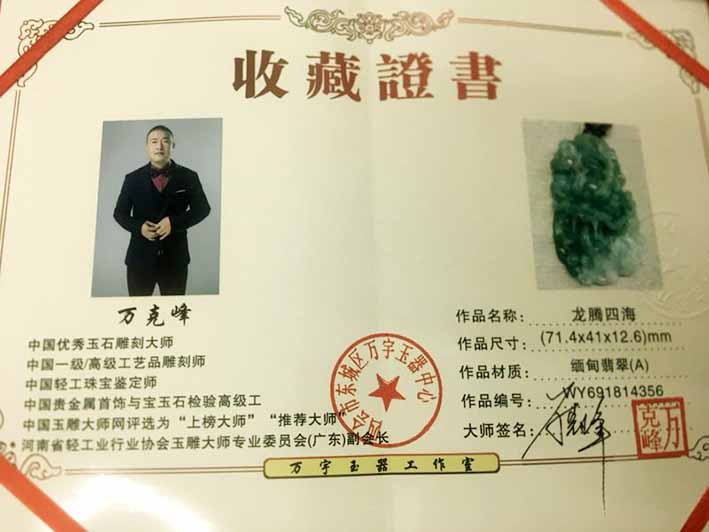 收藏證書
万克峰
中国优秀玉石雕刻大师
中国一级/高级工艺品雕刻师
中国轻工珠宝鉴定师
中国贵金属首饰与宝玉石检验高级工
中国玉雕大师网评选为“上榜大师”“推荐大师”
河南省轻工业行业协会玉雕大师专业委员会(广东)副会长
作品名称: 龙腾四海
作品尺寸: (71.4x41x12.6)mm
作品材质: 缅甸翡翠(A)
作品编号: WY691814356
大师签名: 万克峰
万克峰
四会市东城区万宇玉器中心
万宇玉器工作室